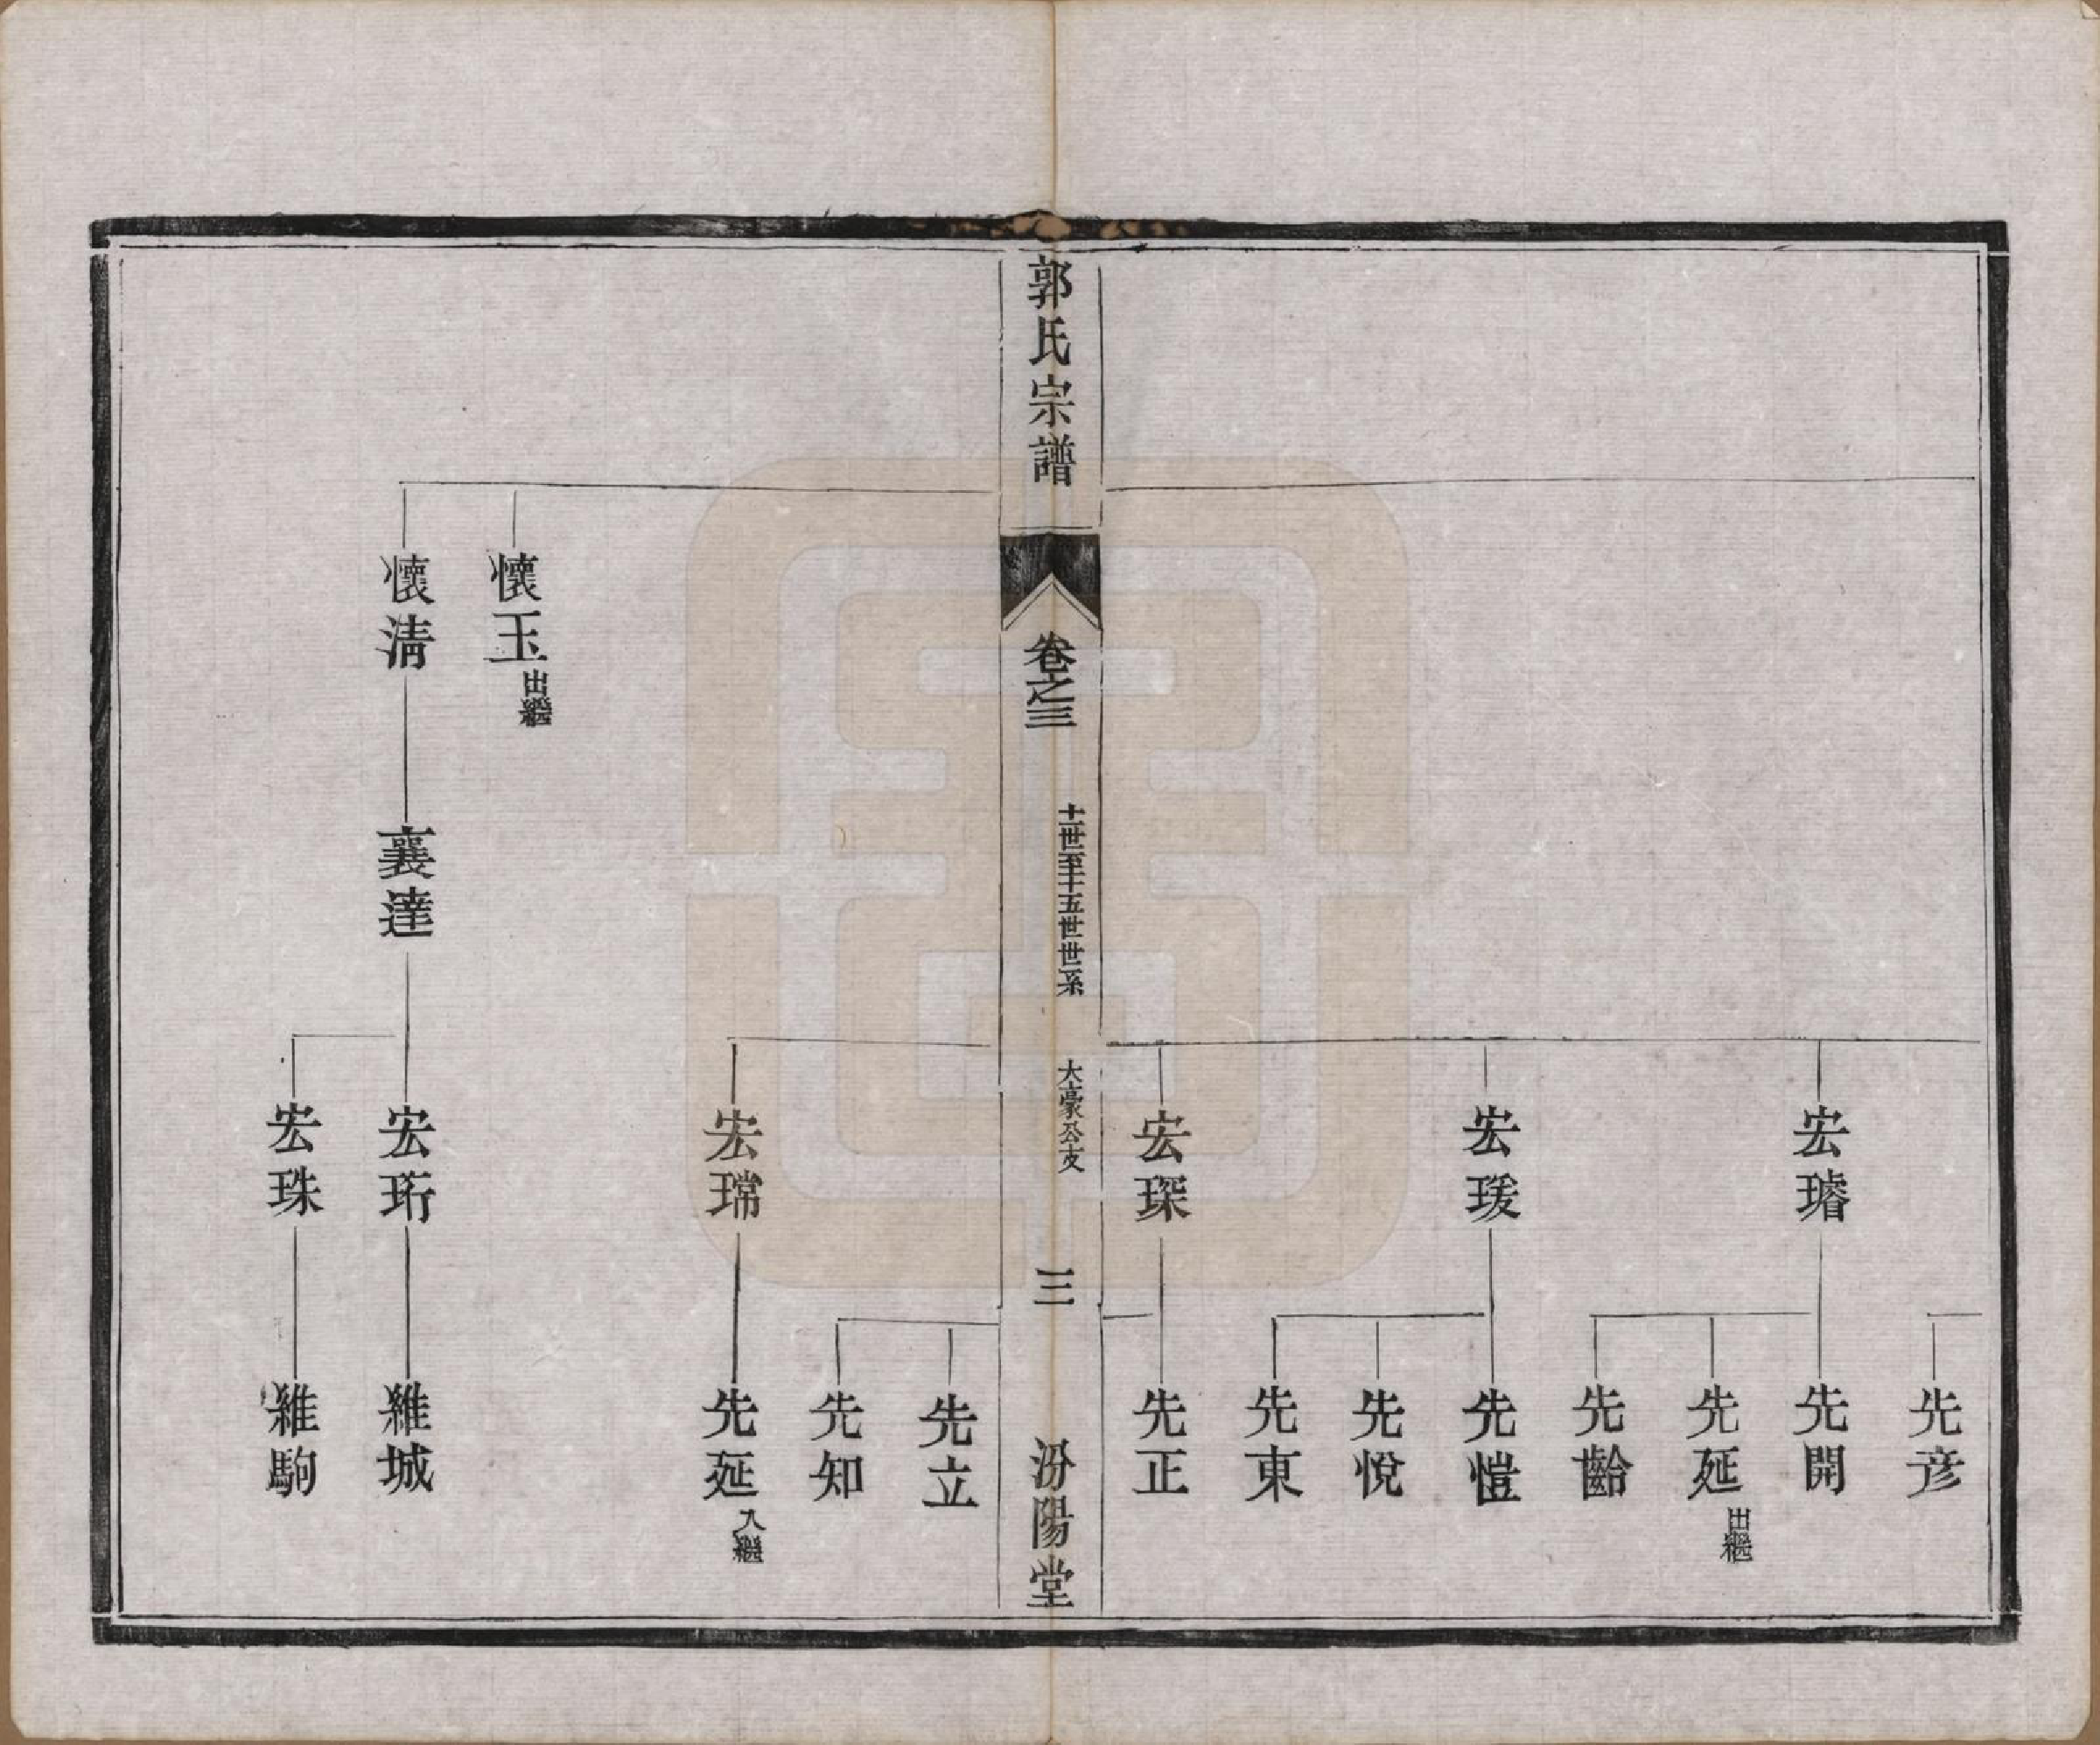 宏璿
宏瑗
宏琛
先彦
先開
先延出繼
先齡
先愷
先悅
先東
先正
郭氏宗譜
卷之三
十一世至十五世世系
大豪公支
三
汾陽堂
懷玉出繼
懷清
襄達
宏瑺
宏珩
宏珠
先立
先知
先延入繼
維城
維駒